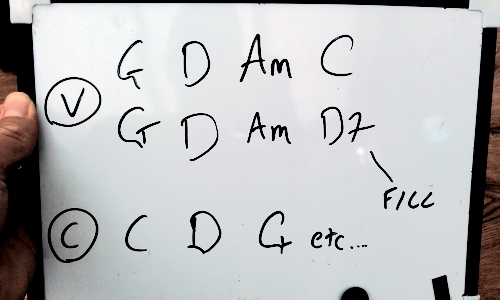 G D Am C
V
G D Am D7
FILL
C C D G etc...